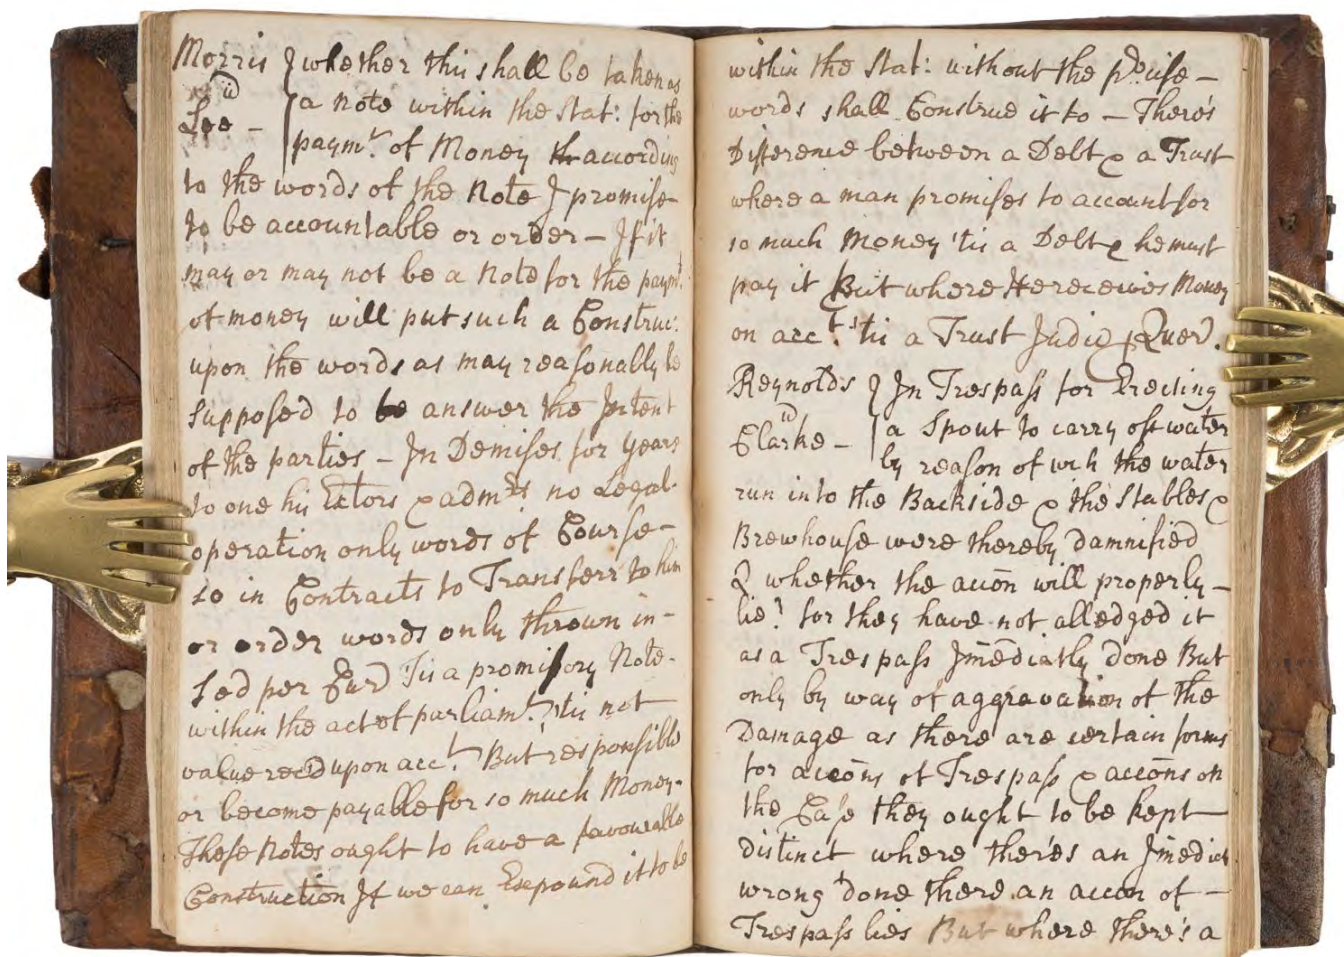 Morris } whether this shall be taken as
vs
Lee - { a Note within the Stat: for the
paymt. of Money th according
to the words of the Note I promise
to be accountable or order - If it
may or may not be a Note for the paymt.
of money will put such a Construc:
upon the words as may reasonably be
supposed to be answer the Intent
of the parties - In Demises for years
to one his Extors & admrs no Legal
operation only words of Course -
so in Contracts to Transferr to him
or order words only thrown in -
Sed per Cur Tis a promisory Note -
within the act of parliamt. 'tis not
value recd upon acct. But responsible
or become payable for so much Money -
These Notes ought to have a favourable
Construction If we can Expound it to be
within the Stat: without the precise -
words shall Construe it so - There's
Difference between a Debt & a Trust
where a man promises to account for
so much Money 'tis a Debt & he must
pay it But where He receives Money
on acct. 'tis a Trust Judic p Quer.
Reynolds } In Trespass for Erecting
vs
Clarke - { a Spout to carry off water
by reason of wch the water
run into the Backside & the Stables &
Brewhouse were thereby damnified
Q whether the accōn will properly -
lie? for they have not alledged it
as a Trespass Im̄ediatly done But
only by way of aggravation of the
Damage as there are certain forms
for accōns of Trespass & accōns on
the Case they ought to be kept
distinct where there's an Im̄ediat
wrong done there an accon of -
Trespass lies But where there's a